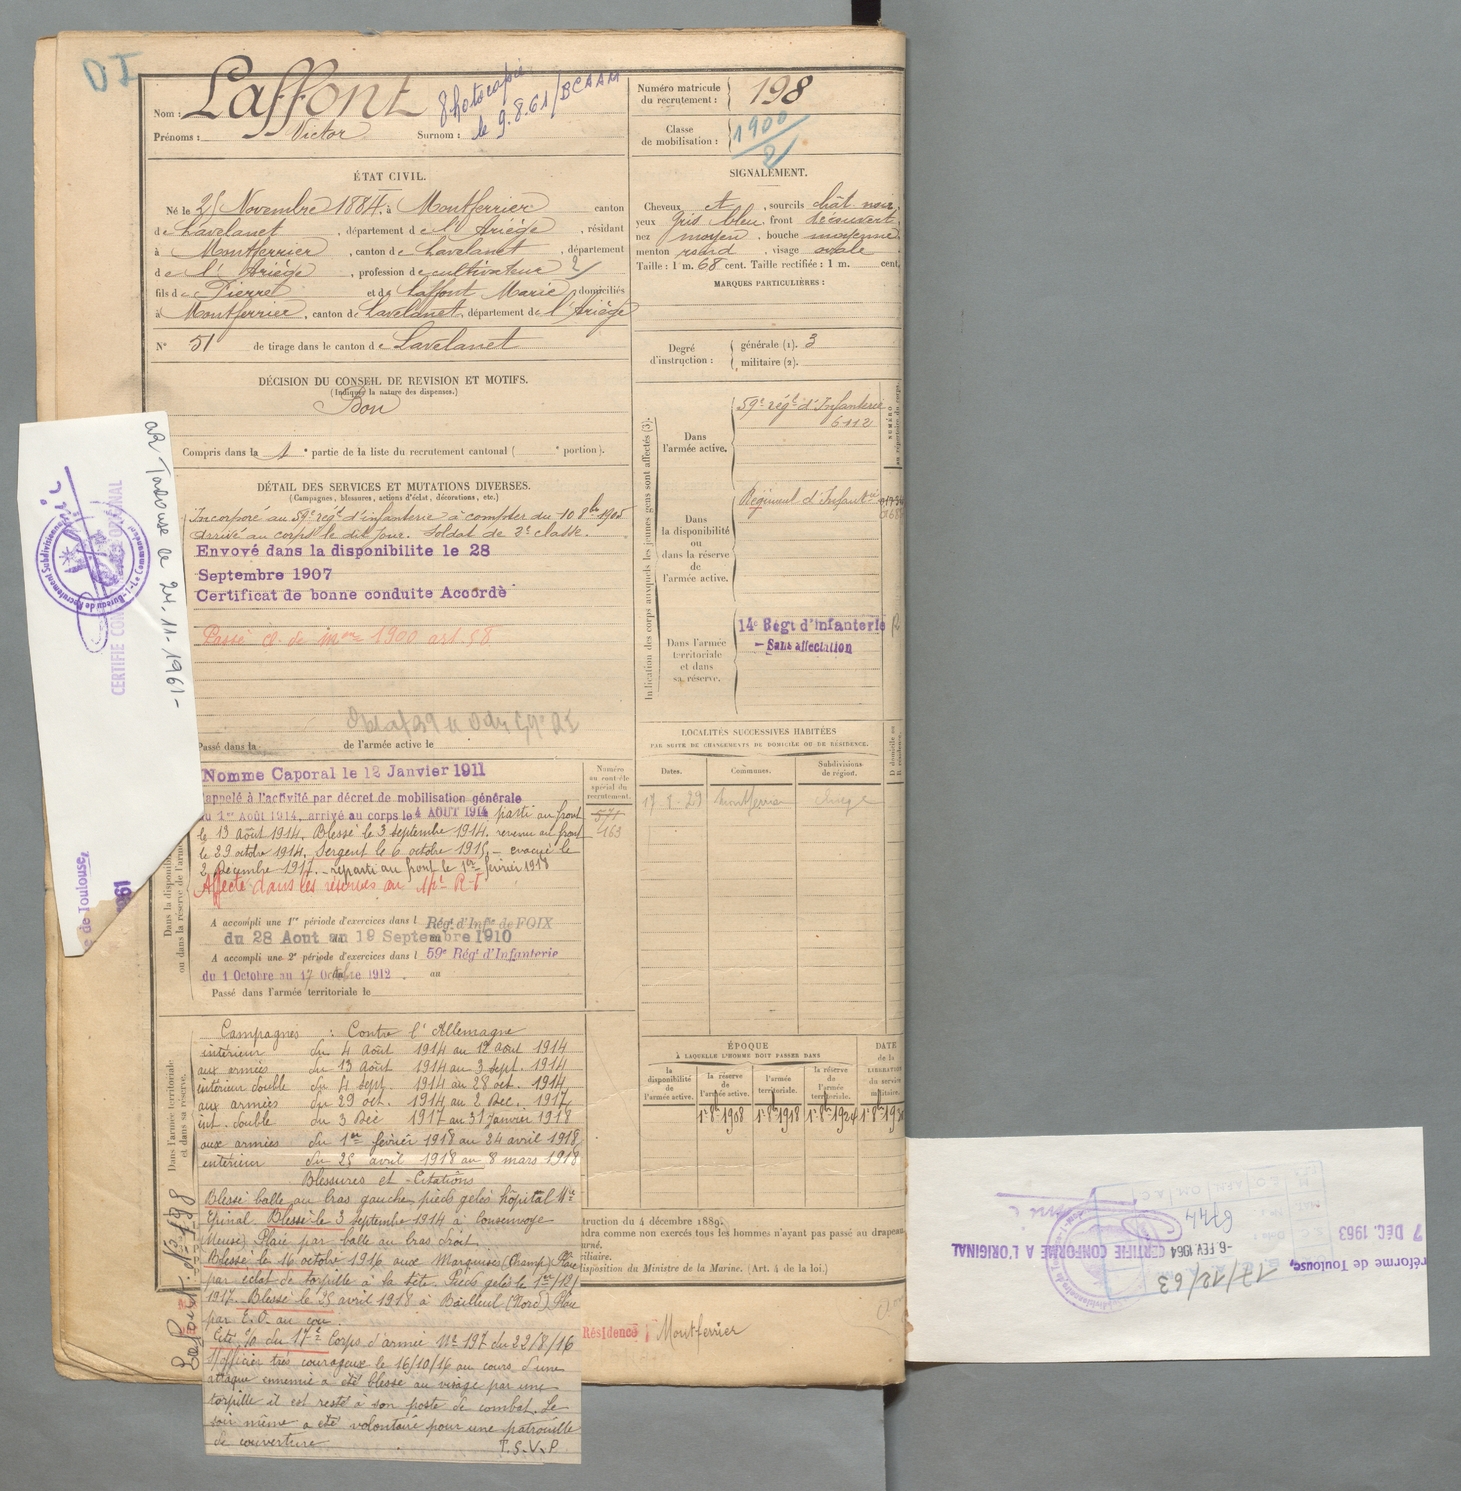 DI
Laffont
Nom :
Photocopie
le 9.8.61 / BCAAM
Prénoms : Victor Surnom :
Numéro matricule
du recrutement : 198
Classe
de mobilisation : 1900
2
ÉTAT CIVIL.
Né le 25 Novembre 1884, à Montferrier canton
de Lavelanet, département de l'Ariège, résidant
à Montferrier, canton de Lavelanet, département
de l'Ariège, profession de cultivateur
fils de Pierre et de Laffont Marie domiciliés
à Montferrier, canton de Lavelanet, département de l'Ariège
N° 51 de tirage dans le canton de Lavelanet
SIGNALEMENT.
Cheveux et, sourcils chât noir,
yeux gris bleu, front découvert,
nez moyen, bouche moyenne,
menton rond, visage ovale
Taille : 1 m. 68 cent. Taille rectifiée : 1 m. cent.
MARQUES PARTICULIÈRES :
Degré
d'instruction :
générale (1). 3
militaire (2).
DÉCISION DU CONSEIL DE REVISION ET MOTIFS.
(Indiquer la nature des dispenses.)
Bon
Compris dans la 1e partie de la liste du recrutement cantonal ( e portion).
DÉTAIL DES SERVICES ET MUTATIONS DIVERSES.
(Campagnes, blessures, actions d'éclat, décorations, etc.)
Incorporé au 59e régt d'infanterie à compter du 10 8bre 1905
Arrivé au corps le dit jour. Soldat de 2e classe.
Envoyé dans la disponibilite le 28
Septembre 1907
Certificat de bonne conduite Accordè
Passé cl. de mon 1900 art. 58
Passé dans la de l'armée active le
Nomme Caporal le 12 Janvier 1911
Rappelé à l'activité par décret de mobilisation générale
du 1er Août 1914, arrivé au corps le 4 AOUT 1914 parti au front
le 13 Août 1914. Blessé le 3 septembre 1914. revenu au front
le 29 octobre 1914. Sergent le 6 octobre 1915 - evacué le
2 Décembre 1917. - reparti au front le 1er février 1918
Affecté dans les réserves au
A accompli une 1re période d'exercices dans l Régt d'Infie de FOIX
du 28 Aout au 19 Septembre 1910
A accompli une 2e période d'exercices dans l 59e Régt d'Infanterie
du 1 Octobre au 17 Octobre 1912 au
Passé dans l'armée territoriale le
Numéro
au contrôle
spécial du
recrutement.
571
163
Indication des corps auxquels les jeunes gens sont affectés (3).
Dans
l'armée active.
59e régt d'Infanterie
6112
NUMÉRO
au répertoire du corps.
Dans
la disponibilité
ou
dans la réserve
de
l'armée active.
Régiment d'Infanterie
Dans l'armée
territoriale
et dans
sa réserve.
14e Régt d'infanterie R
- Sans affectation
LOCALITÉS SUCCESSIVES HABITÉES
PAR SUITE DE CHANGEMENTS DE DOMICILE OU DE RÉSIDENCE.
Dates. Communes. Subdivisions
de région. D domicile ou
R résidence.
Montferrier Ariège
ÉPOQUE
À LAQUELLE L'HOMME DOIT PASSER DANS
la
disponibilité
de
l'armée active.
la réserve
de
l'armée active.
l'armée
territoriale.
la réserve
de
l'armée
territoriale.
DATE
de la
LIBÉRATION
du service
militaire.
1er 8bre 1908 1er 8bre 1918
Dans l'armée territoriale
et dans sa réserve.
Campagnes : Contre l'Allemagne
intérieur du 4 Août 1914 au 12 aout 1914
aux armées du 13 Août 1914 au 3 sept. 1914
intérieur double du 4 sept. 1914 au 28 oct. 1914
aux armées du 29 oct. 1914 au 2 Dec. 1917
int. double du 3 Déc 1917 au 31 Janvier 1918
aux armées du 1er février 1918 au 24 avril 1918
intérieur du 25 avril 1918 au 8 mars 1918
Blessures et Citations
Blessé balle au bras gauche, pieds gelés hôpital
Epinal. Blessé le 3 septembre 1914 à Consenvoye
(Meuse) Plaie par balle au bras droit.
Blessé le 16 octobre 1916 aux Marquises (Champ) Plaie
par éclat de torpille à la tête. Pieds gelés le 1er/12/
1917. Blessé le 25 avril 1918 à Bailleul (Nord) Plaie
par E.O. au cou.
Cité % du 17e Corps d'armée N° 197 du 22/8/16
S/officier très courageux le 16/10/16 au cours d'une
attaque ennemie a été blessé au visage par une
torpille il est resté à son poste de combat. Le
soir même a été volontaire pour une patrouille
de couverture
T.S.V.P
Laffont. N° 198
truction du 4 décembre 1889.
ndra comme non exercés tous les hommes n'ayant pas passé au drapeau
urné.
ciliaire.
disposition du Ministre de la Marine. (Art. 4 de la loi.)
Résidence : Montferrier
Toulouse le 24-11-1961-
CERTIFIE CON ORIGINAL
Bureau de Recrutement Subdivisionnaire - Le Commandant
e de Toulouse,
1961
7 DÉC. 1963
réforme de Toulouse,
17/12/63
-6 FEV 1964
CERTIFIE CONFORME A L'ORIGINAL
6744